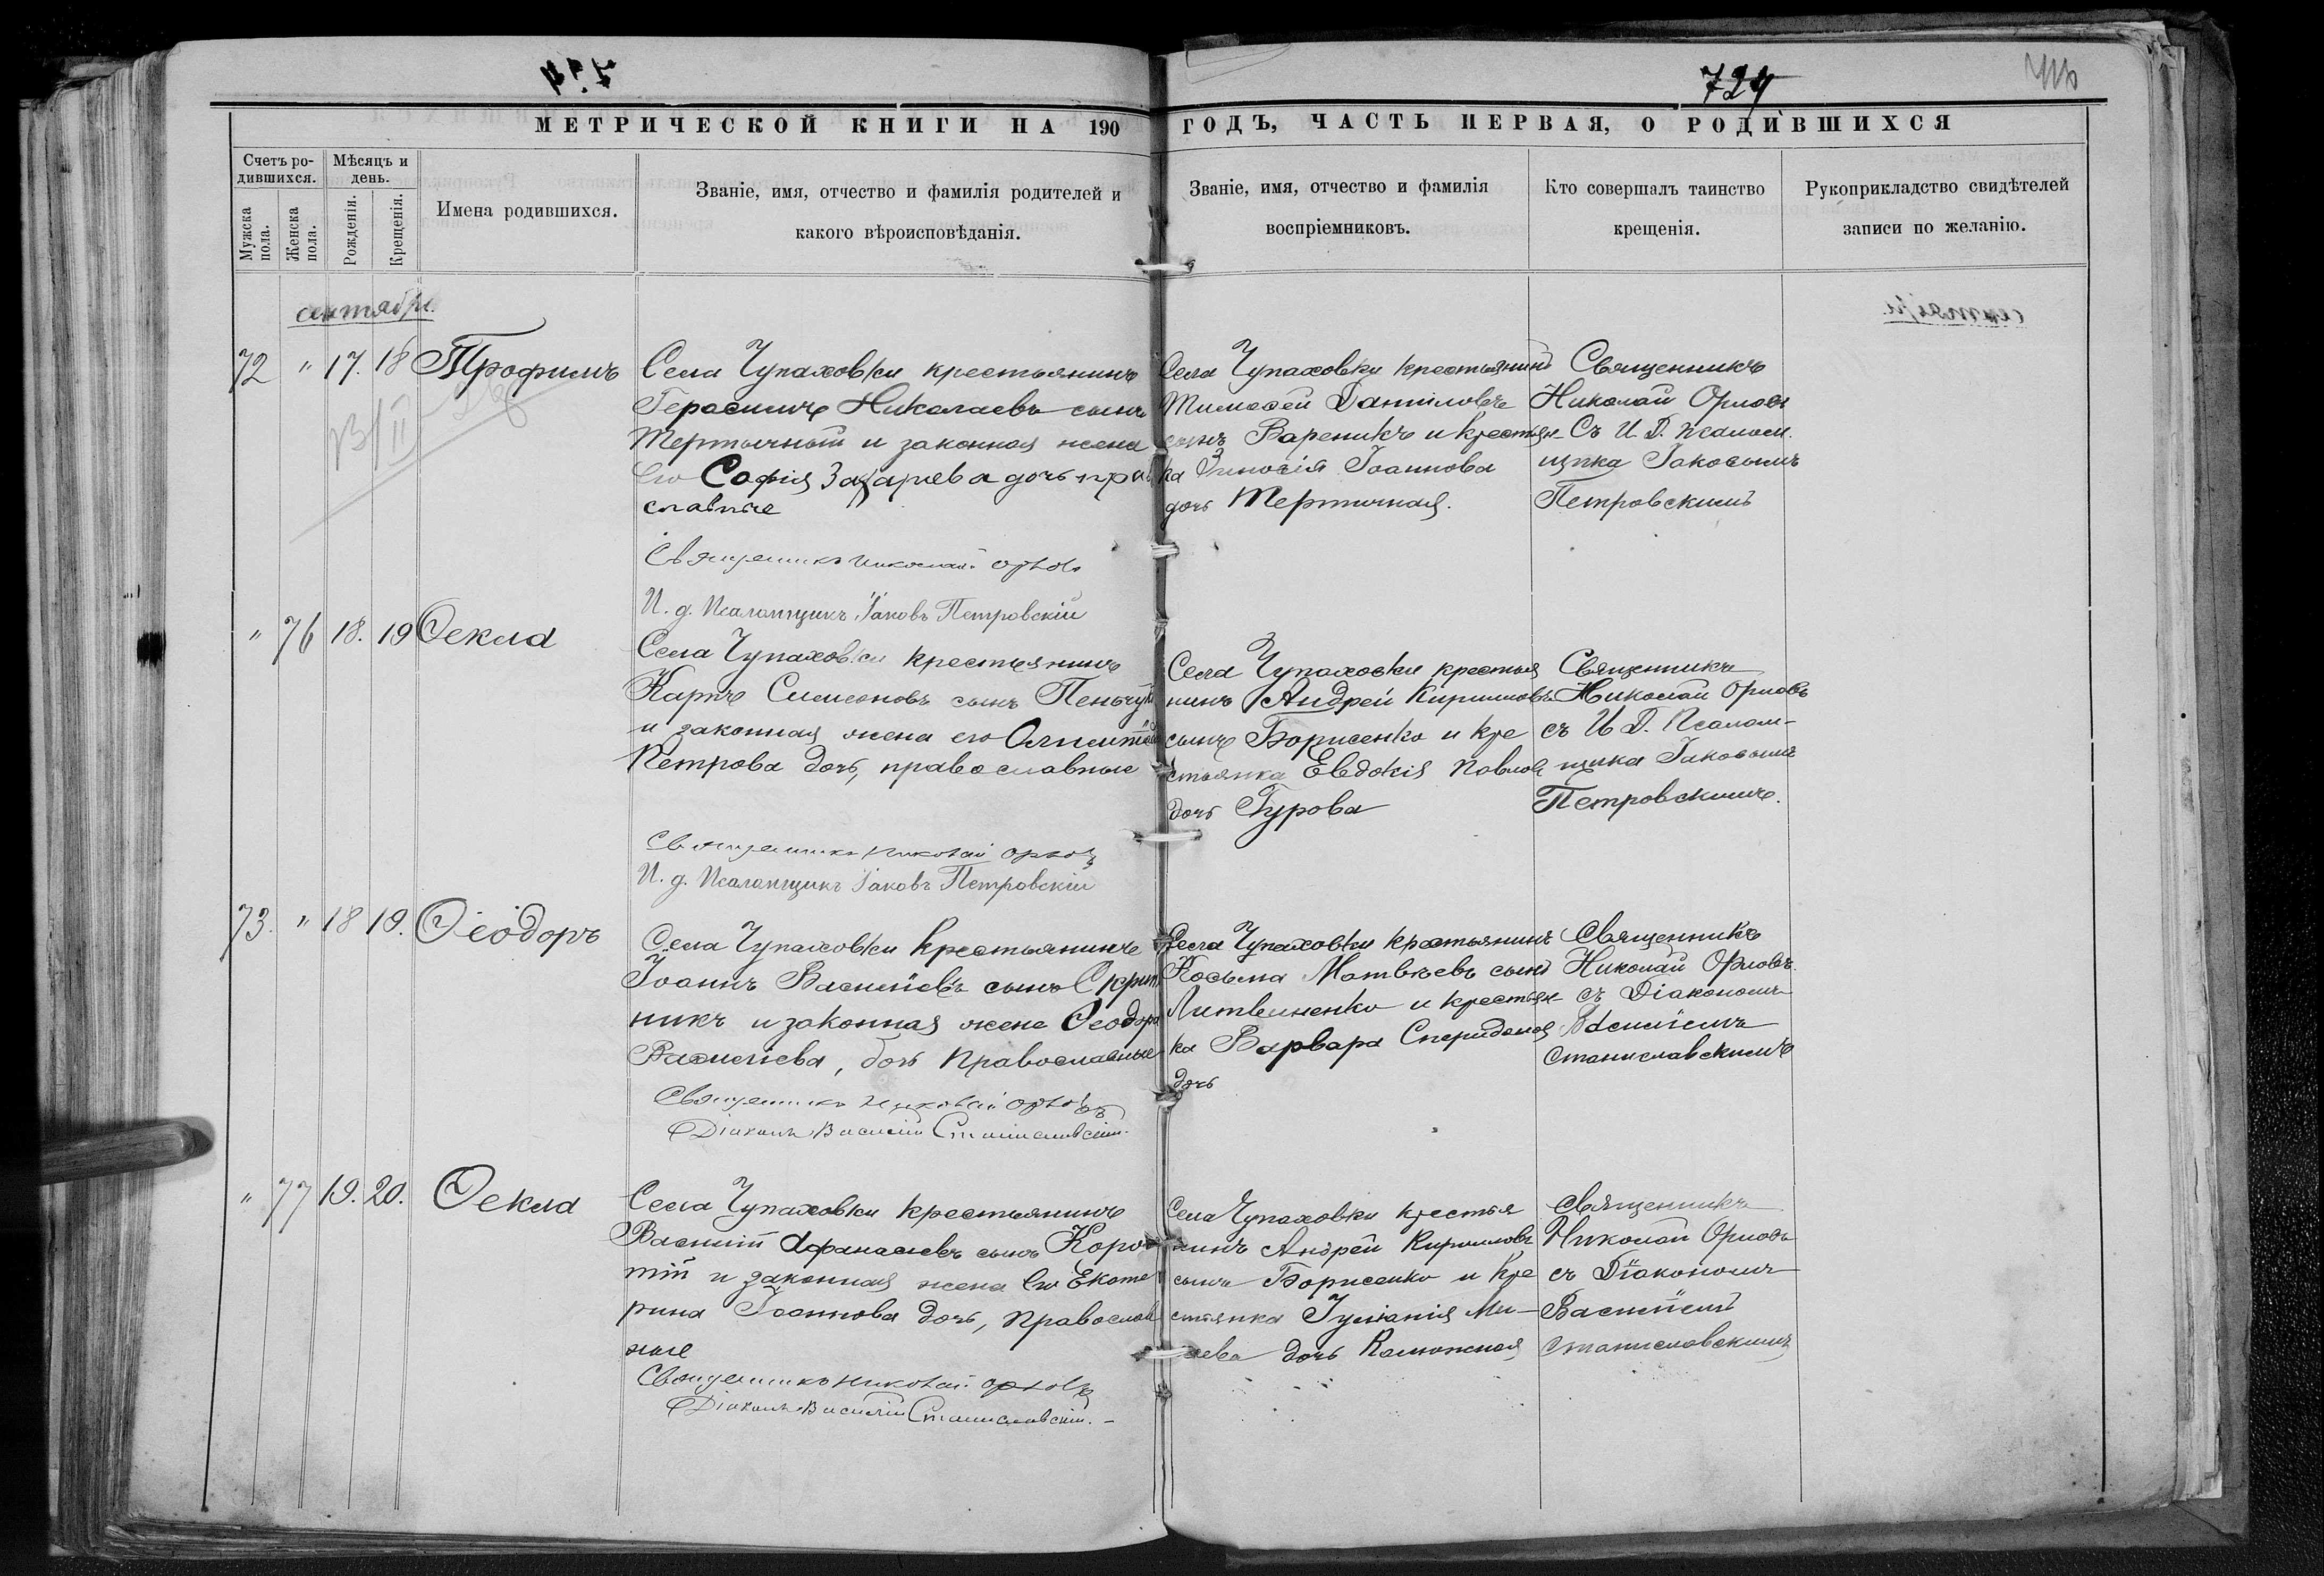 724
МЕТРИЧЕСКОЙ КНИГИ НА 190 ГОДЪ, ЧАСТЬ ПЕРВАЯ, О РОДИВШИХСЯ
Счетъ ро-
дившихся.
Мужска
пола.
Женска
пола.
Мѣсяцъ и
день.
Рожденія.
Крещенія.
Имена родившихся.
Званіе, имя, отчество и фамилія родителей и
какого вѣроисповѣданія.
Званіе, имя, отчество и фамилія
воспріемниковъ.
Кто совершалъ таинство
крещенія.
Рукоприкладство свидѣтелей
записи по желанію.
сентября.
72 " 17. 18 Трофимъ
Села Чупаховки крестьянинъ
Герасимъ Николаевъ сынъ
Тертычный и законная жена
его Софія Захаріева дочь пра
славные
Священникъ Николай Орловъ
И. д. Псаломщикъ Іаковъ Петровскій
Села Чупаховки крестьянинъ
Тимоѳей Даніиловъ
сынъ Вареникъ и крестьян-
ка Зиновія Іоаннова
дочь Тертичная.
Священникъ
Николай Орловъ
Съ И. Д. псалом.
щика Іаковымъ
Петровскимъ
" 76 18. 19 Ѳекла
Села Чупаховки крестьянинъ
Карпъ Симеоновъ сынъ
и законная жена его
Петрова дочь, православные
Священникъ Николай Орловъ
И. д. Псаломщикъ Іаковъ Петровскій
Села Чупаховки крестья
нинъ Андрей Кирилловъ
сынъ Борисенко и кре
стьянка Евдокія Павлова
дочь Гурова
Священникъ
Николай Орловъ
съ И. Д. Псалом-
щика Іаковымъ
Петровскимъ.
73. " 18 19. Ѳеодоръ
Села Чупаховки крестьянинъ
Іоаннъ Василіевъ сынъ Скрип
никъ и законная жена Ѳеодора
Василіева, дочь православные
Священникъ Николай Орловъ
Діаконъ Василій Станиславскій.
Села Чупаховки крестьянинъ
Косьма Матвѣевъ сынъ
Литвиненко и крестьян-
ка Варвара Спиридонова
дочь
Священникъ
Николай Орловъ.
съ Діакономъ
Василіемъ
Станиславскимъ
" 77 19. 20. Ѳекла
Села Чупаховки крестьянинъ
Василій Афанасіевъ сынъ Коро
тій и законная жена его Екате
рина Іоаннова дочь, православ
ные
Священникъ Николай Орловъ
Діаконъ Василій Станиславскій.-
Села Чупаховки крестья
нинъ Андрей Кирилловъ
сынъ Борисенко и кре
стьянка Іуліанія
дочь
Священникъ
Николай Орловъ
съ Діакономъ
Василіемъ
Станиславскимъ